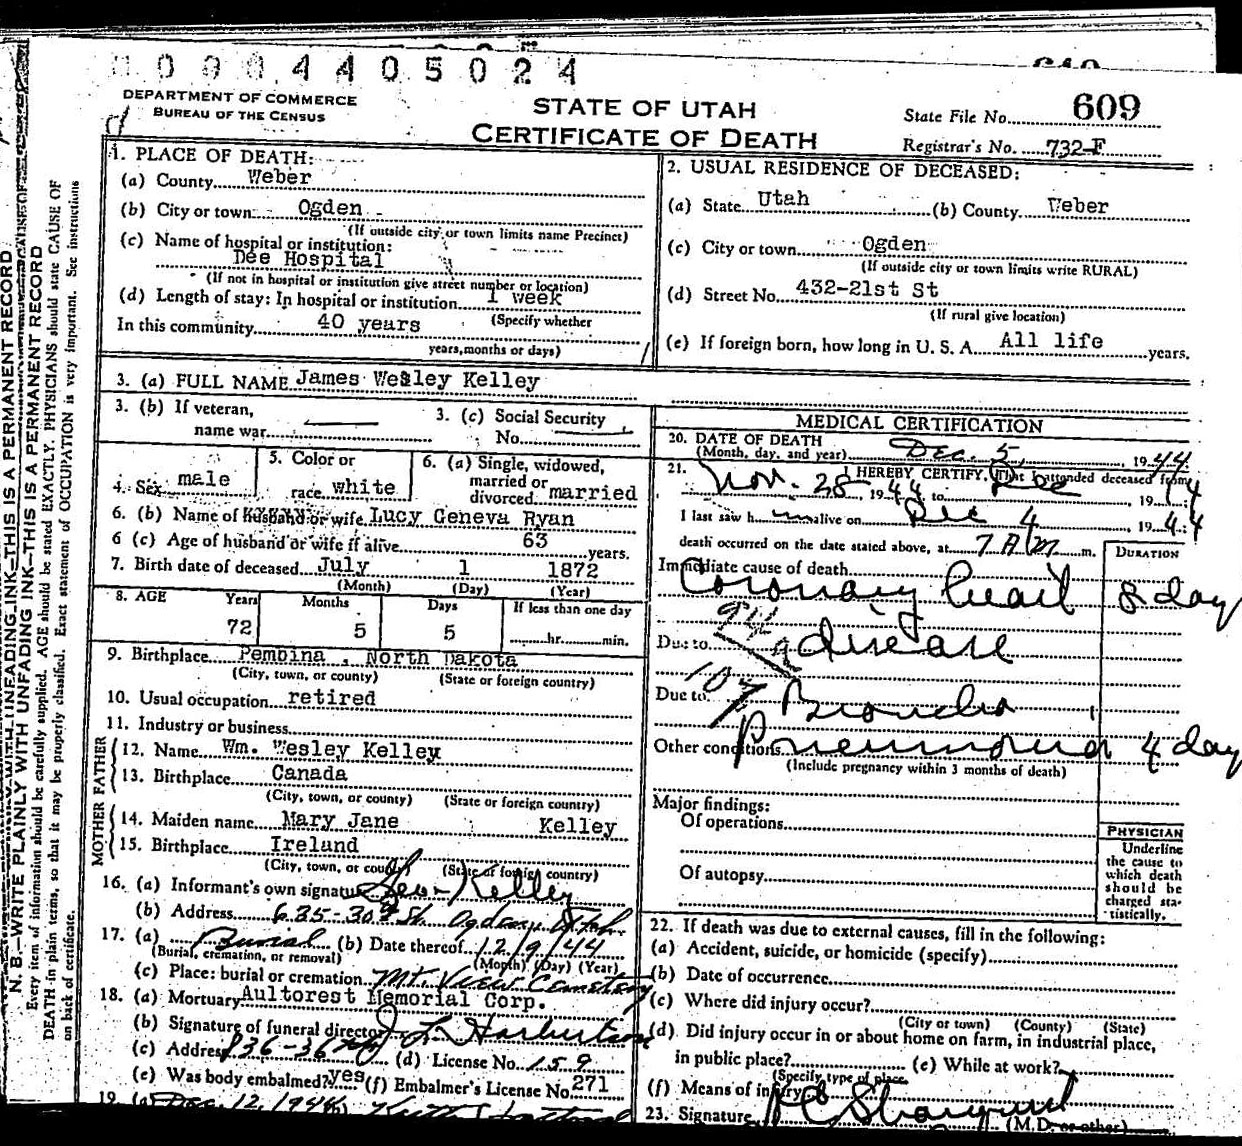 0 9 0 4 4 0 5 0 2 4
DEPARTMENT OF COMMERCE
BUREAU OF THE CENSUS
STATE OF UTAH
CERTIFICATE OF DEATH
State File No. 609
Registrar's No. 732-F
N. B.—WRITE PLAINLY WITH UNFADING INK—THIS IS A PERMANENT RECORD
Every item of information should be carefully supplied. AGE should be stated EXACTLY. PHYSICIANS should state CAUSE OF
DEATH in plain terms, so that it may be properly classified. Exact statement of OCCUPATION is very important. See instructions
on back of certificate.
1. PLACE OF DEATH:
(a) County Weber
(b) City or town Ogden
(If outside city or town limits name Precinct)
(c) Name of hospital or institution:
Dee Hospital
(If not in hospital or institution give street number or location)
(d) Length of stay: In hospital or institution 1 week
In this community 40 years (Specify whether
years, months or days)
2. USUAL RESIDENCE OF DECEASED:
(a) State Utah (b) County Weber
(c) City or town Ogden
(If outside city or town limits write RURAL)
(d) Street No. 432-21st St
(If rural give location)
(e) If foreign born, how long in U. S. A. All life years.
3. (a) FULL NAME James Wesley Kelley
3. (b) If veteran,
name war
3. (c) Social Security
No.
4. Sex male
5. Color or
race white
6. (a) Single, widowed,
married or
divorced married
6. (b) Name of husband or wife Lucy Geneva Ryan
6 (c) Age of husband or wife if alive 63 years.
7. Birth date of deceased July 1 1872
(Month) (Day) (Year)
8. AGE Years Months Days If less than one day
72 5 5 hr. min.
9. Birthplace Pembina, North Dakota
(City, town, or county) (State or foreign country)
10. Usual occupation retired
11. Industry or business
FATHER
12. Name Wm. Wesley Kelley
13. Birthplace Canada
(City, town, or county) (State or foreign country)
MOTHER
14. Maiden name Mary Jane Kelley
15. Birthplace Ireland
(City, town, or county) (State or foreign country)
16. (a) Informant's own signature Kelley
(b) Address 635-30th St. Ogden, Utah.
17. (a) Burial (b) Date thereof 12/9/44
(Burial, cremation, or removal) (Month) (Day) (Year)
(c) Place: burial or cremation Mt. View Cemetery
18. (a) Mortuary Aultorest Memorial Corp.
(b) Signature of funeral director J L Harbertson
(c) Address 836-36th (d) License No. 159
(e) Was body embalmed? yes (f) Embalmer's License No. 271
19. (a) Dec. 12, 1944
MEDICAL CERTIFICATION
20. DATE OF DEATH
(Month, day, and year) Dec. 5, 1944
21. I HEREBY CERTIFY, That I attended deceased from
Nov. 28, 1944 to Dec 1944
I last saw h alive on Dec 4, 1944
death occurred on the date stated above, at 7 A m m.
DURATION
Immediate cause of death
Coronary heart 8 day
94a
Due to disease
107
Due to Broncho
Other conditions pneumonia 4 day
(Include pregnancy within 3 months of death)
Major findings:
Of operations
Of autopsy
PHYSICIAN
Underline
the cause to
which death
should be
charged sta-
tistically.
22. If death was due to external causes, fill in the following:
(a) Accident, suicide, or homicide (specify)
(b) Date of occurrence
(c) Where did injury occur?
(City or town) (County) (State)
(d) Did injury occur in or about home on farm, in industrial place,
in public place? (e) While at work?
(Specify type of place)
(f) Means of injury
23. Signature (M.D. or other)